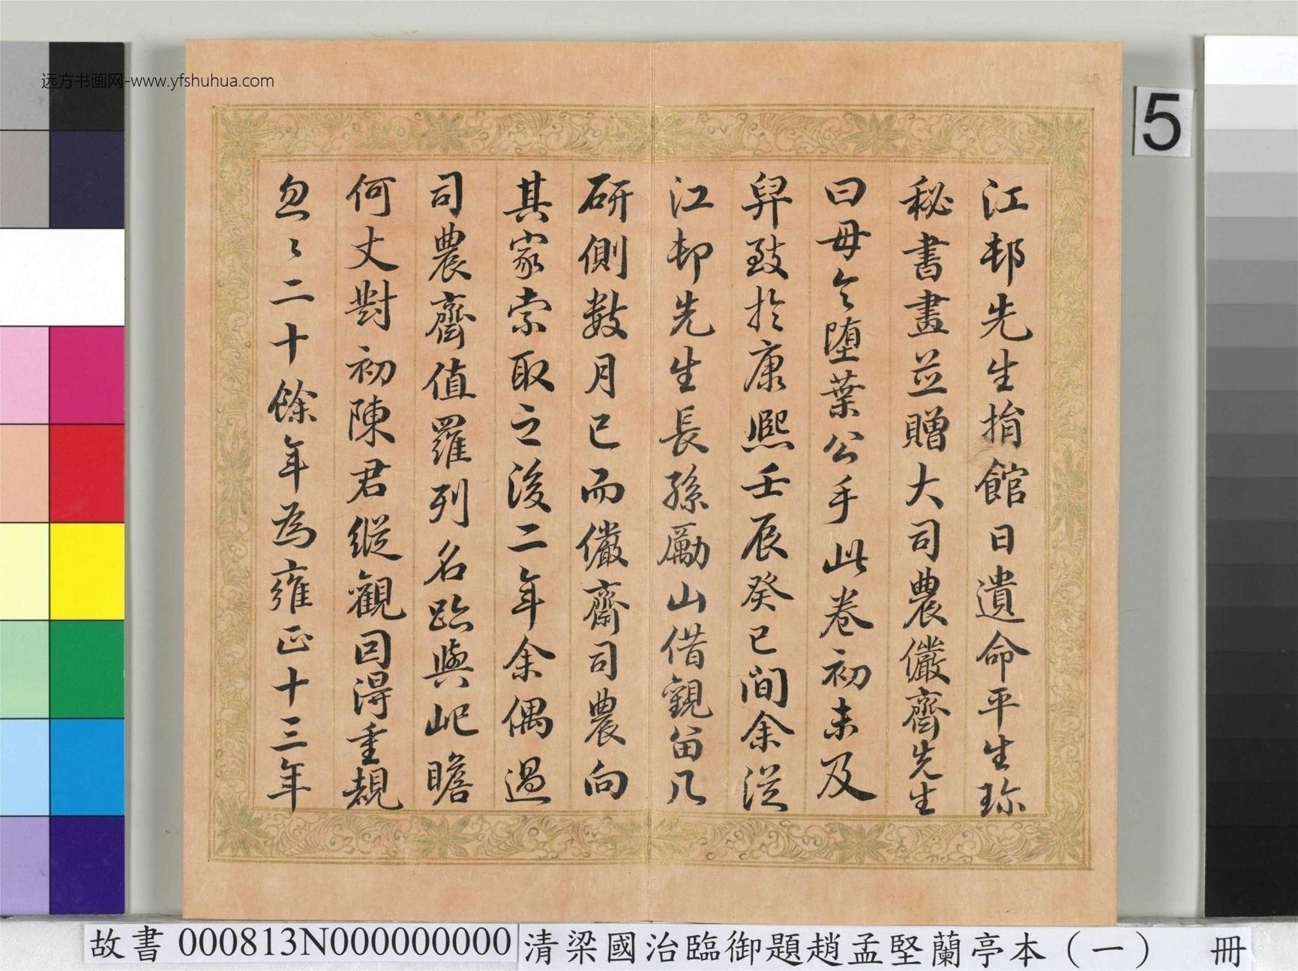 远方书画网-www.yfshuhua.com
5
江邨先生捐館日遺命平生珎
秘書畫並贈大司農儼齋先生
曰毋令堕葉公手此卷初未及
畀致於康熙壬辰癸巳間余從
江邨先生長孫勵山借觀留几
研側數月已而儼齋司農向
其家索取之後二年余偶過
司農齋值羅列名跡與屺瞻
何丈對初陳君縱觀因得重觀
忽〻二十餘年為雍正十三年
故書 000813N000000000 清梁國治臨御題趙孟堅蘭亭本（一） 冊